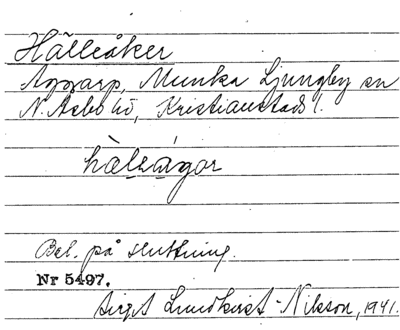 Hälleåker
Aggarp, Munka Ljungby sn
N. Åsbo hd, Kristianstads l.
hàlságor
Bel. på sluttning.
Nr 5497.
Birgit Lundkvist-Nilsson, 1941.